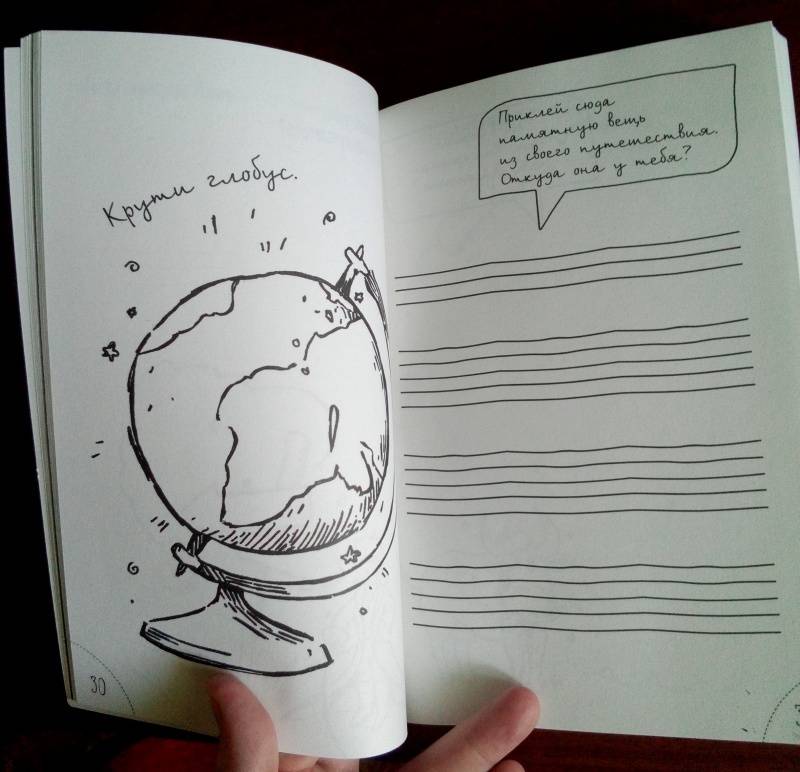 Крути глобус.
30
Приклей сюда
памятную вещь
из своего путешествия.
Откуда она у тебя?